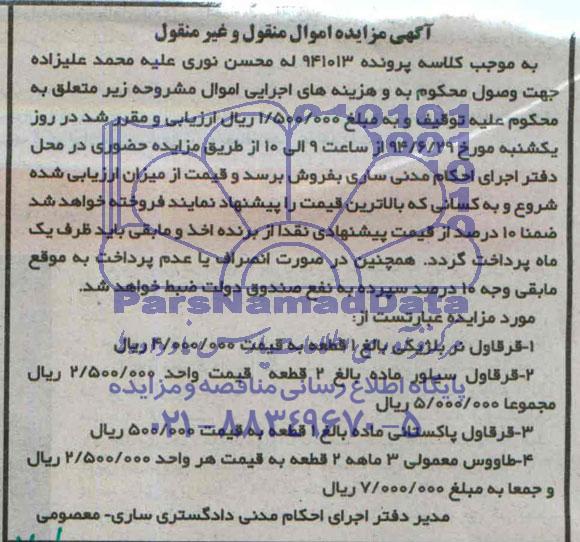 آگهی مزایده اموال منقول و غیر منقول
به موجب کلاسه پرونده ۹۴۱۰۱۳ له محسن نوری علیه محمد علیزاده
جهت وصول محکوم به و هزینه های اجرایی اموال مشروحه زیر متعلق به
محکوم علیه توقیف و به مبلغ ۱/۵۰۰/۰۰۰ ریال ارزیابی و مقرر شد در روز
یکشنبه مورخ ۹۴/۶/۲۹ از ساعت ۹ الی ۱۰ از طریق مزایده حضوری در محل
دفتر اجرای احکام مدنی ساری بفروش برسد و قیمت از میزان ارزیابی شده
شروع و به کسانی که بالاترین قیمت را پیشنهاد نمایند فروخته خواهد شد
ضمنا ۱۰ درصد از قیمت پیشنهادی نقدا از برنده اخذ و مابقی باید ظرف یک
ماه پرداخت گردد. همچنین در صورت انصراف یا عدم پرداخت به موقع
مابقی وجه ۱۰ درصد سپرده به نفع صندوق دولت ضبط خواهد شد.
ParsNamadData
مورد مزایده عبارتست از:
۱-قرقاول نر بلژیکی بالغ ۱ قطعه به قیمت ۴/۰۰۰/۰۰۰ ریال
۲-قرقاول سیلور ماده بالغ ۲ قطعه قیمت واحد ۲/۵۰۰/۰۰۰ ریال
پایگاه اطلاع رسانی مناقصه و مزایده
مجموعا ۵/۰۰۰/۰۰۰ ریال
۰۲۱-۸۸۳۴۹۶۷۰-۵
۳-قرقاول پاکستانی ماده بالغ ۱ قطعه به قیمت ۵۰۰/۰۰۰ ریال
۴-طاووس معمولی ۳ ماهه ۲ قطعه به قیمت هر واحد ۲/۵۰۰/۰۰۰ ریال
و جمعا به مبلغ ۷/۰۰۰/۰۰۰ ریال
مدیر دفتر اجرای احکام مدنی دادگستری ساری- معصومی